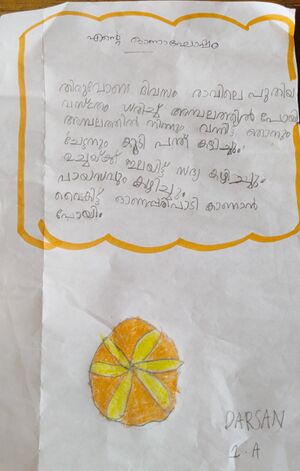 എന്റെ ഓണാഘോഷം
തിരുവോണ ദിവസം രാവിലെ പുതിയ
വസ്ത്രം ധരിച്ച് അമ്പലത്തിൽ പോയി
അമ്പലത്തിൽ നിന്നും വന്നിട്ട് ഞാനും
ചേട്ടനും കൂടി പന്ത് കളിച്ചും.
ഉച്ചയ്ക്ക് ഇലയിട്ട് സദ്യ കഴിച്ചും
പായസവും കുടിച്ചും.
വൈകിട്ട് ഓണപരിപാടി കാണാൻ
പോയി.
DARSAN
2. A